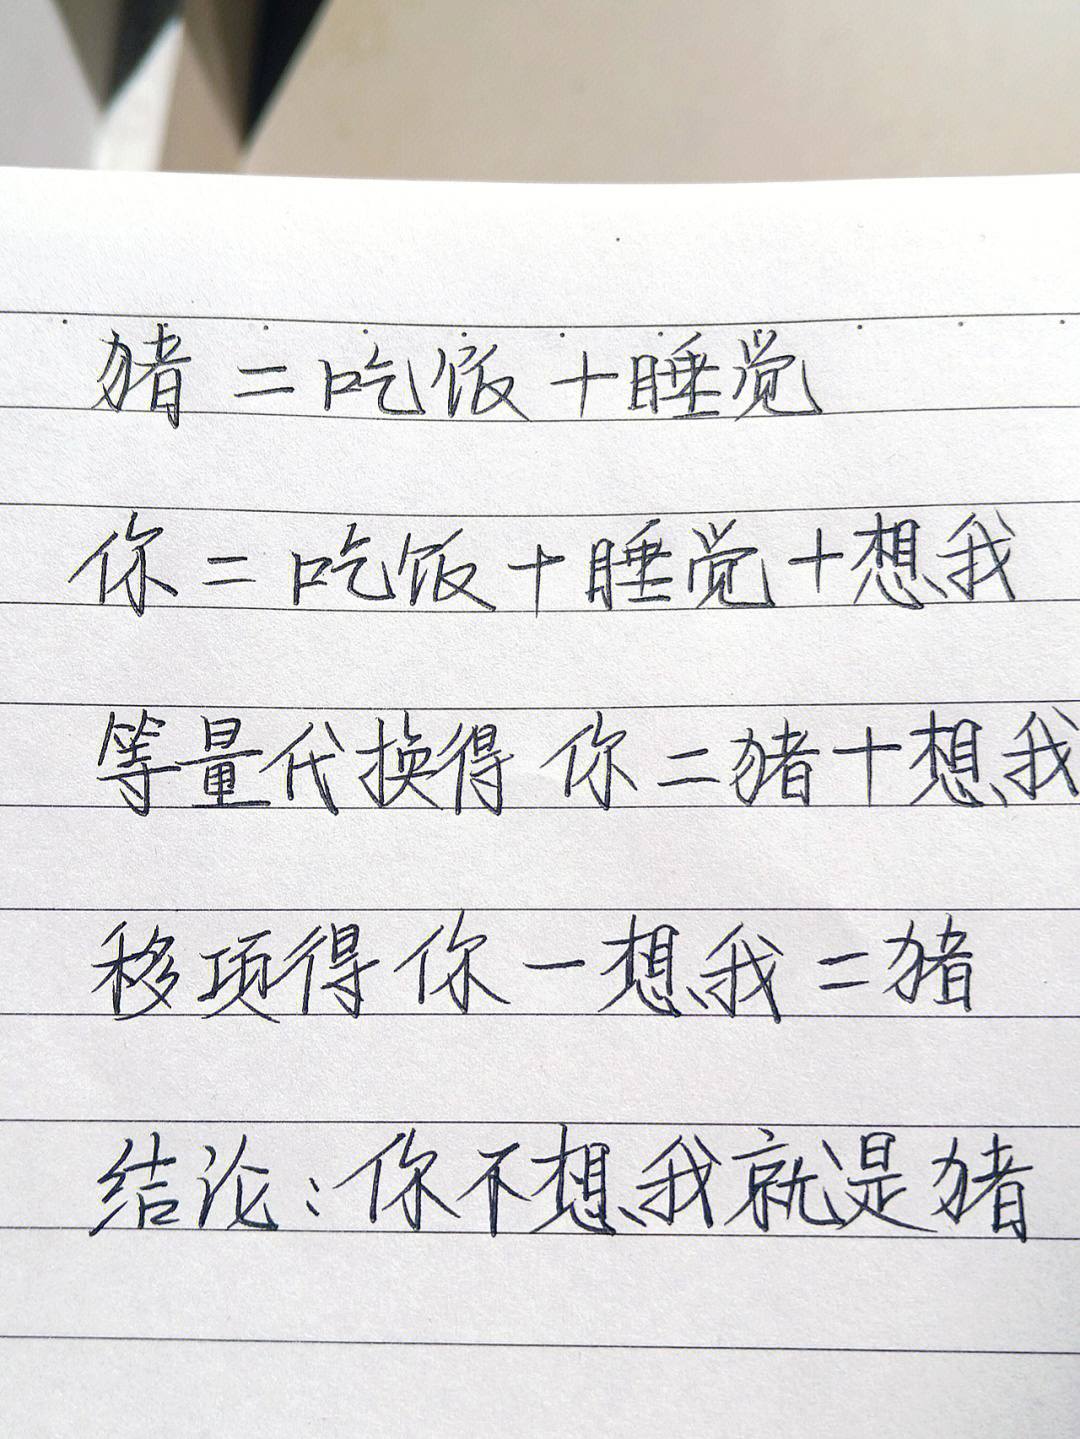 猪=吃饭+睡觉
你=吃饭+睡觉+想我
等量代换得 你=猪+想我
移项得 你-想我=猪
结论:你不想我就是猪